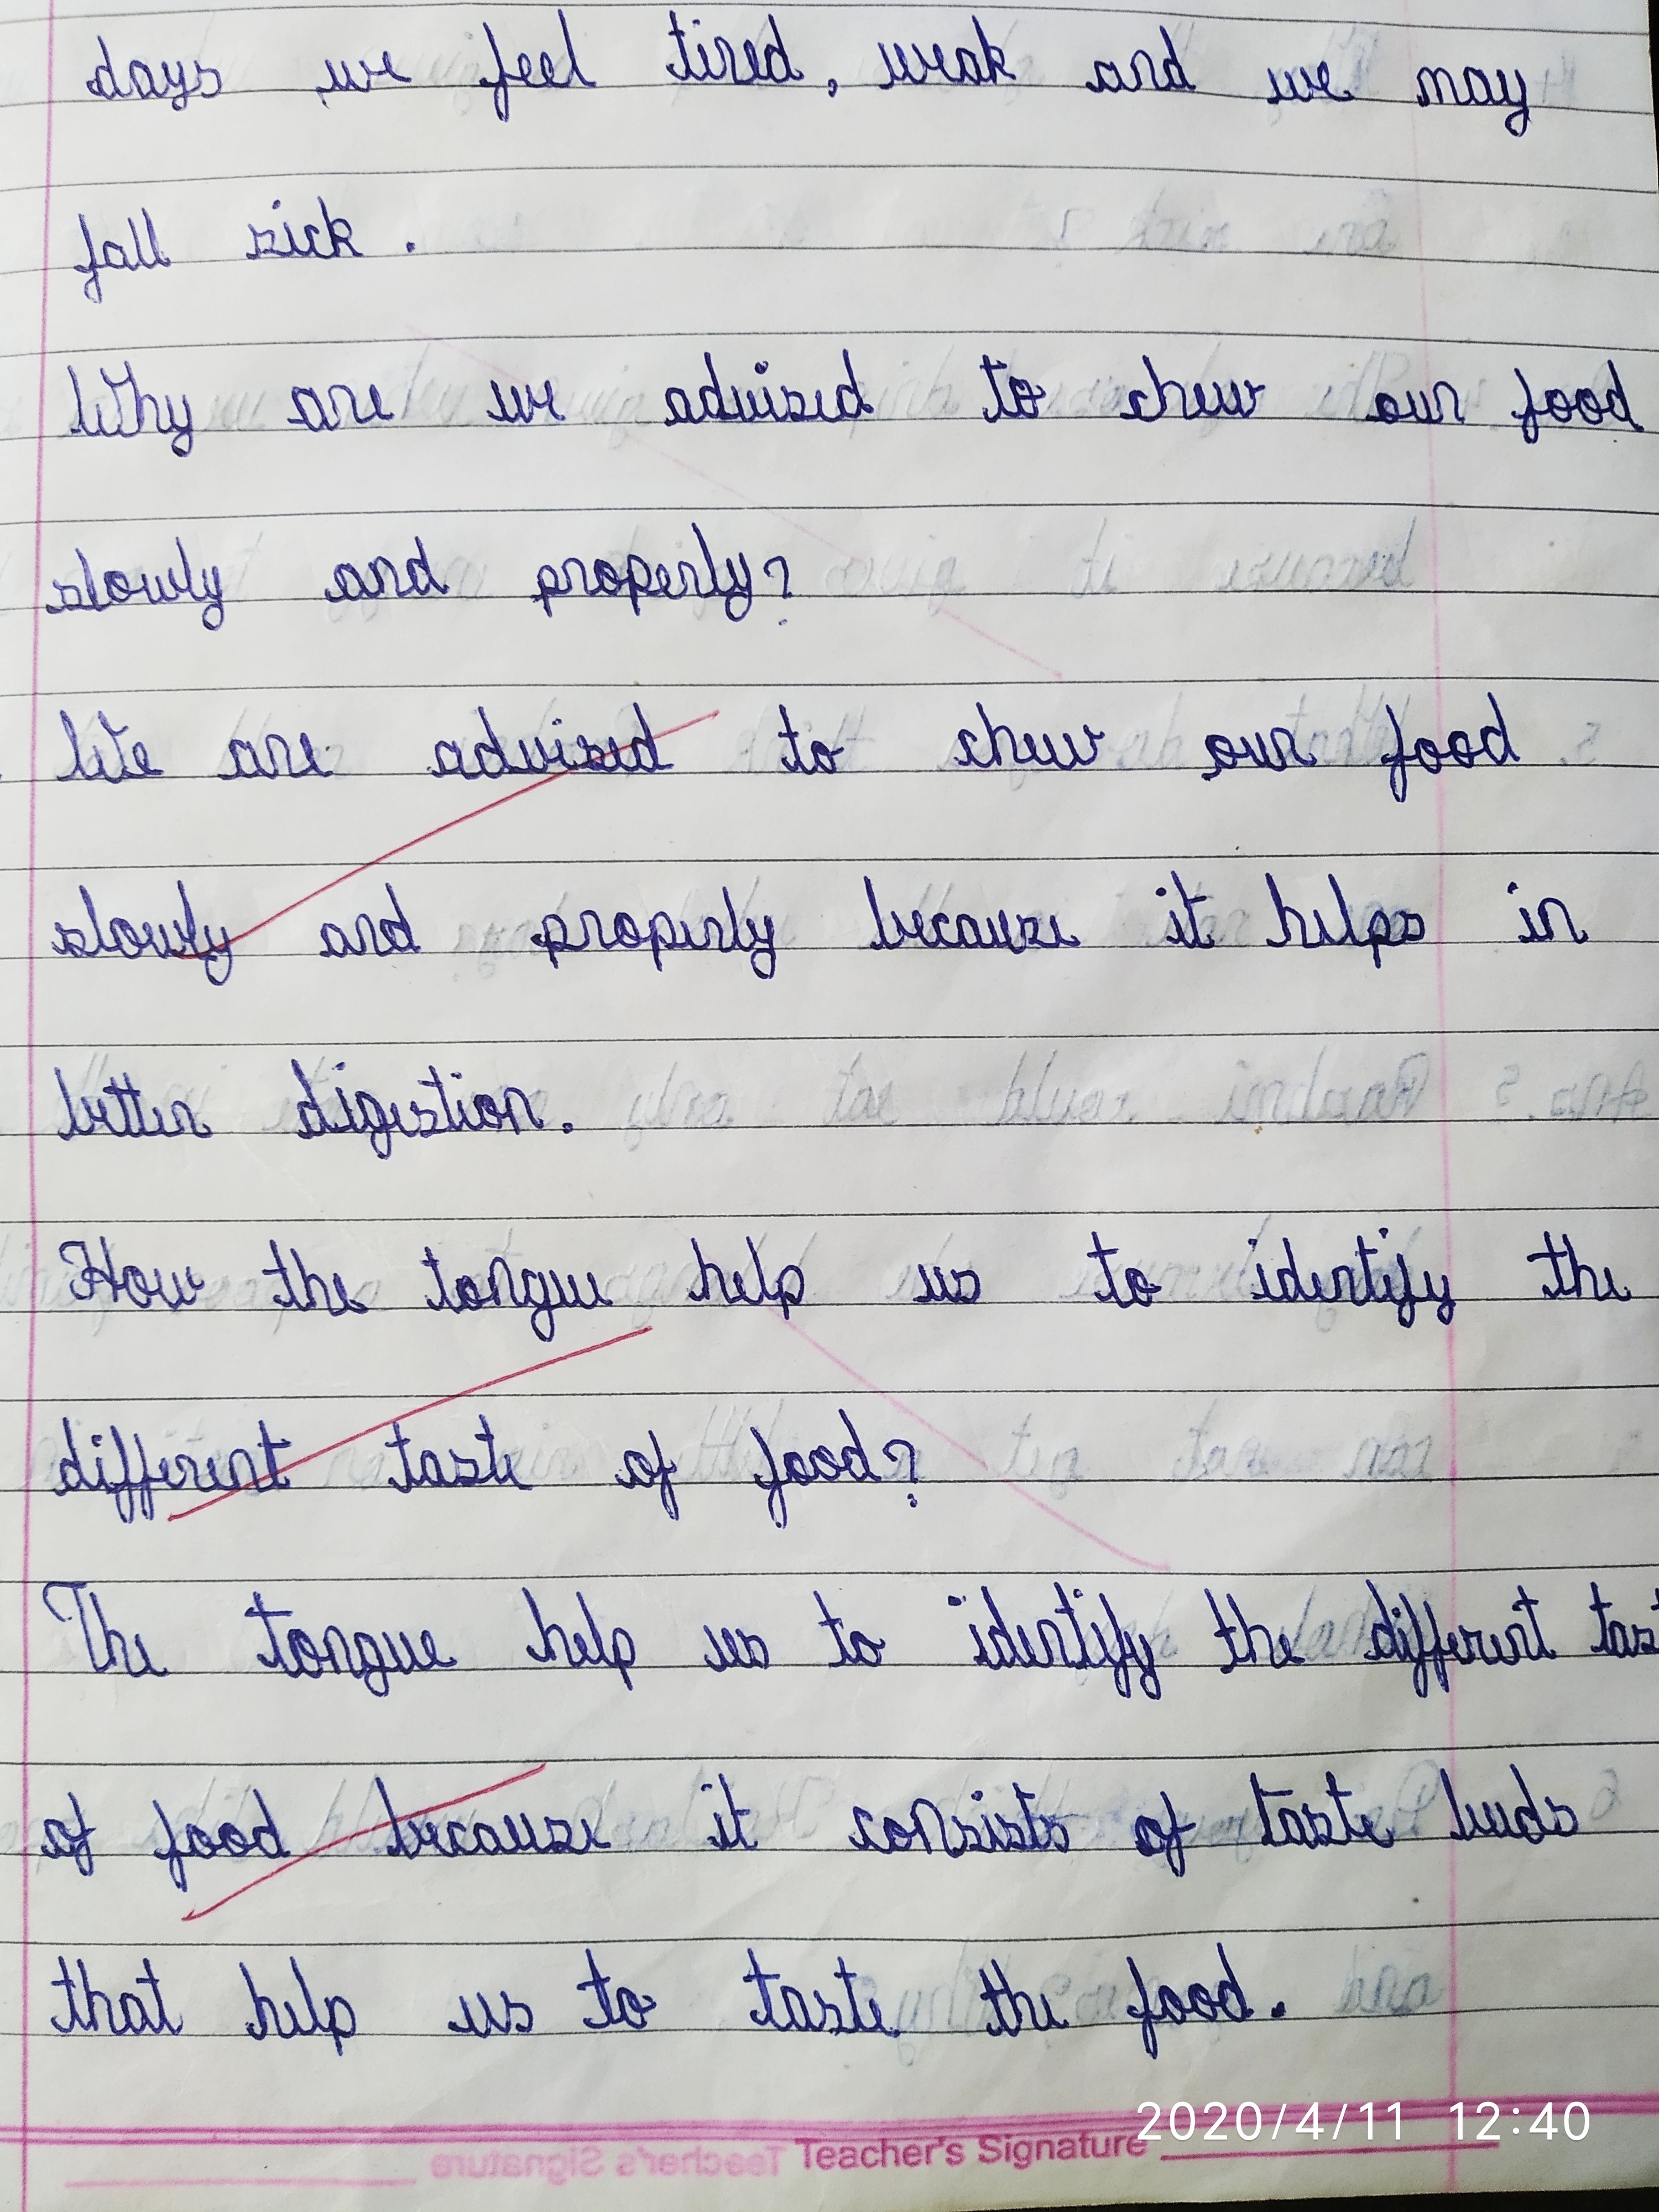 days we feel tired, weak and we may
fall sick.
Why are we advised to chew our food
slowly and properly?
We are advised to chew our food
slowly and properly because it helps in
better digestion.
How the tongue help us to identify the
different taste of food?
The tongue help us to identify the different tast
of food because it consists of taste buds
that help us to taste the food.
2020/4/11 12:40
Teacher's Signature